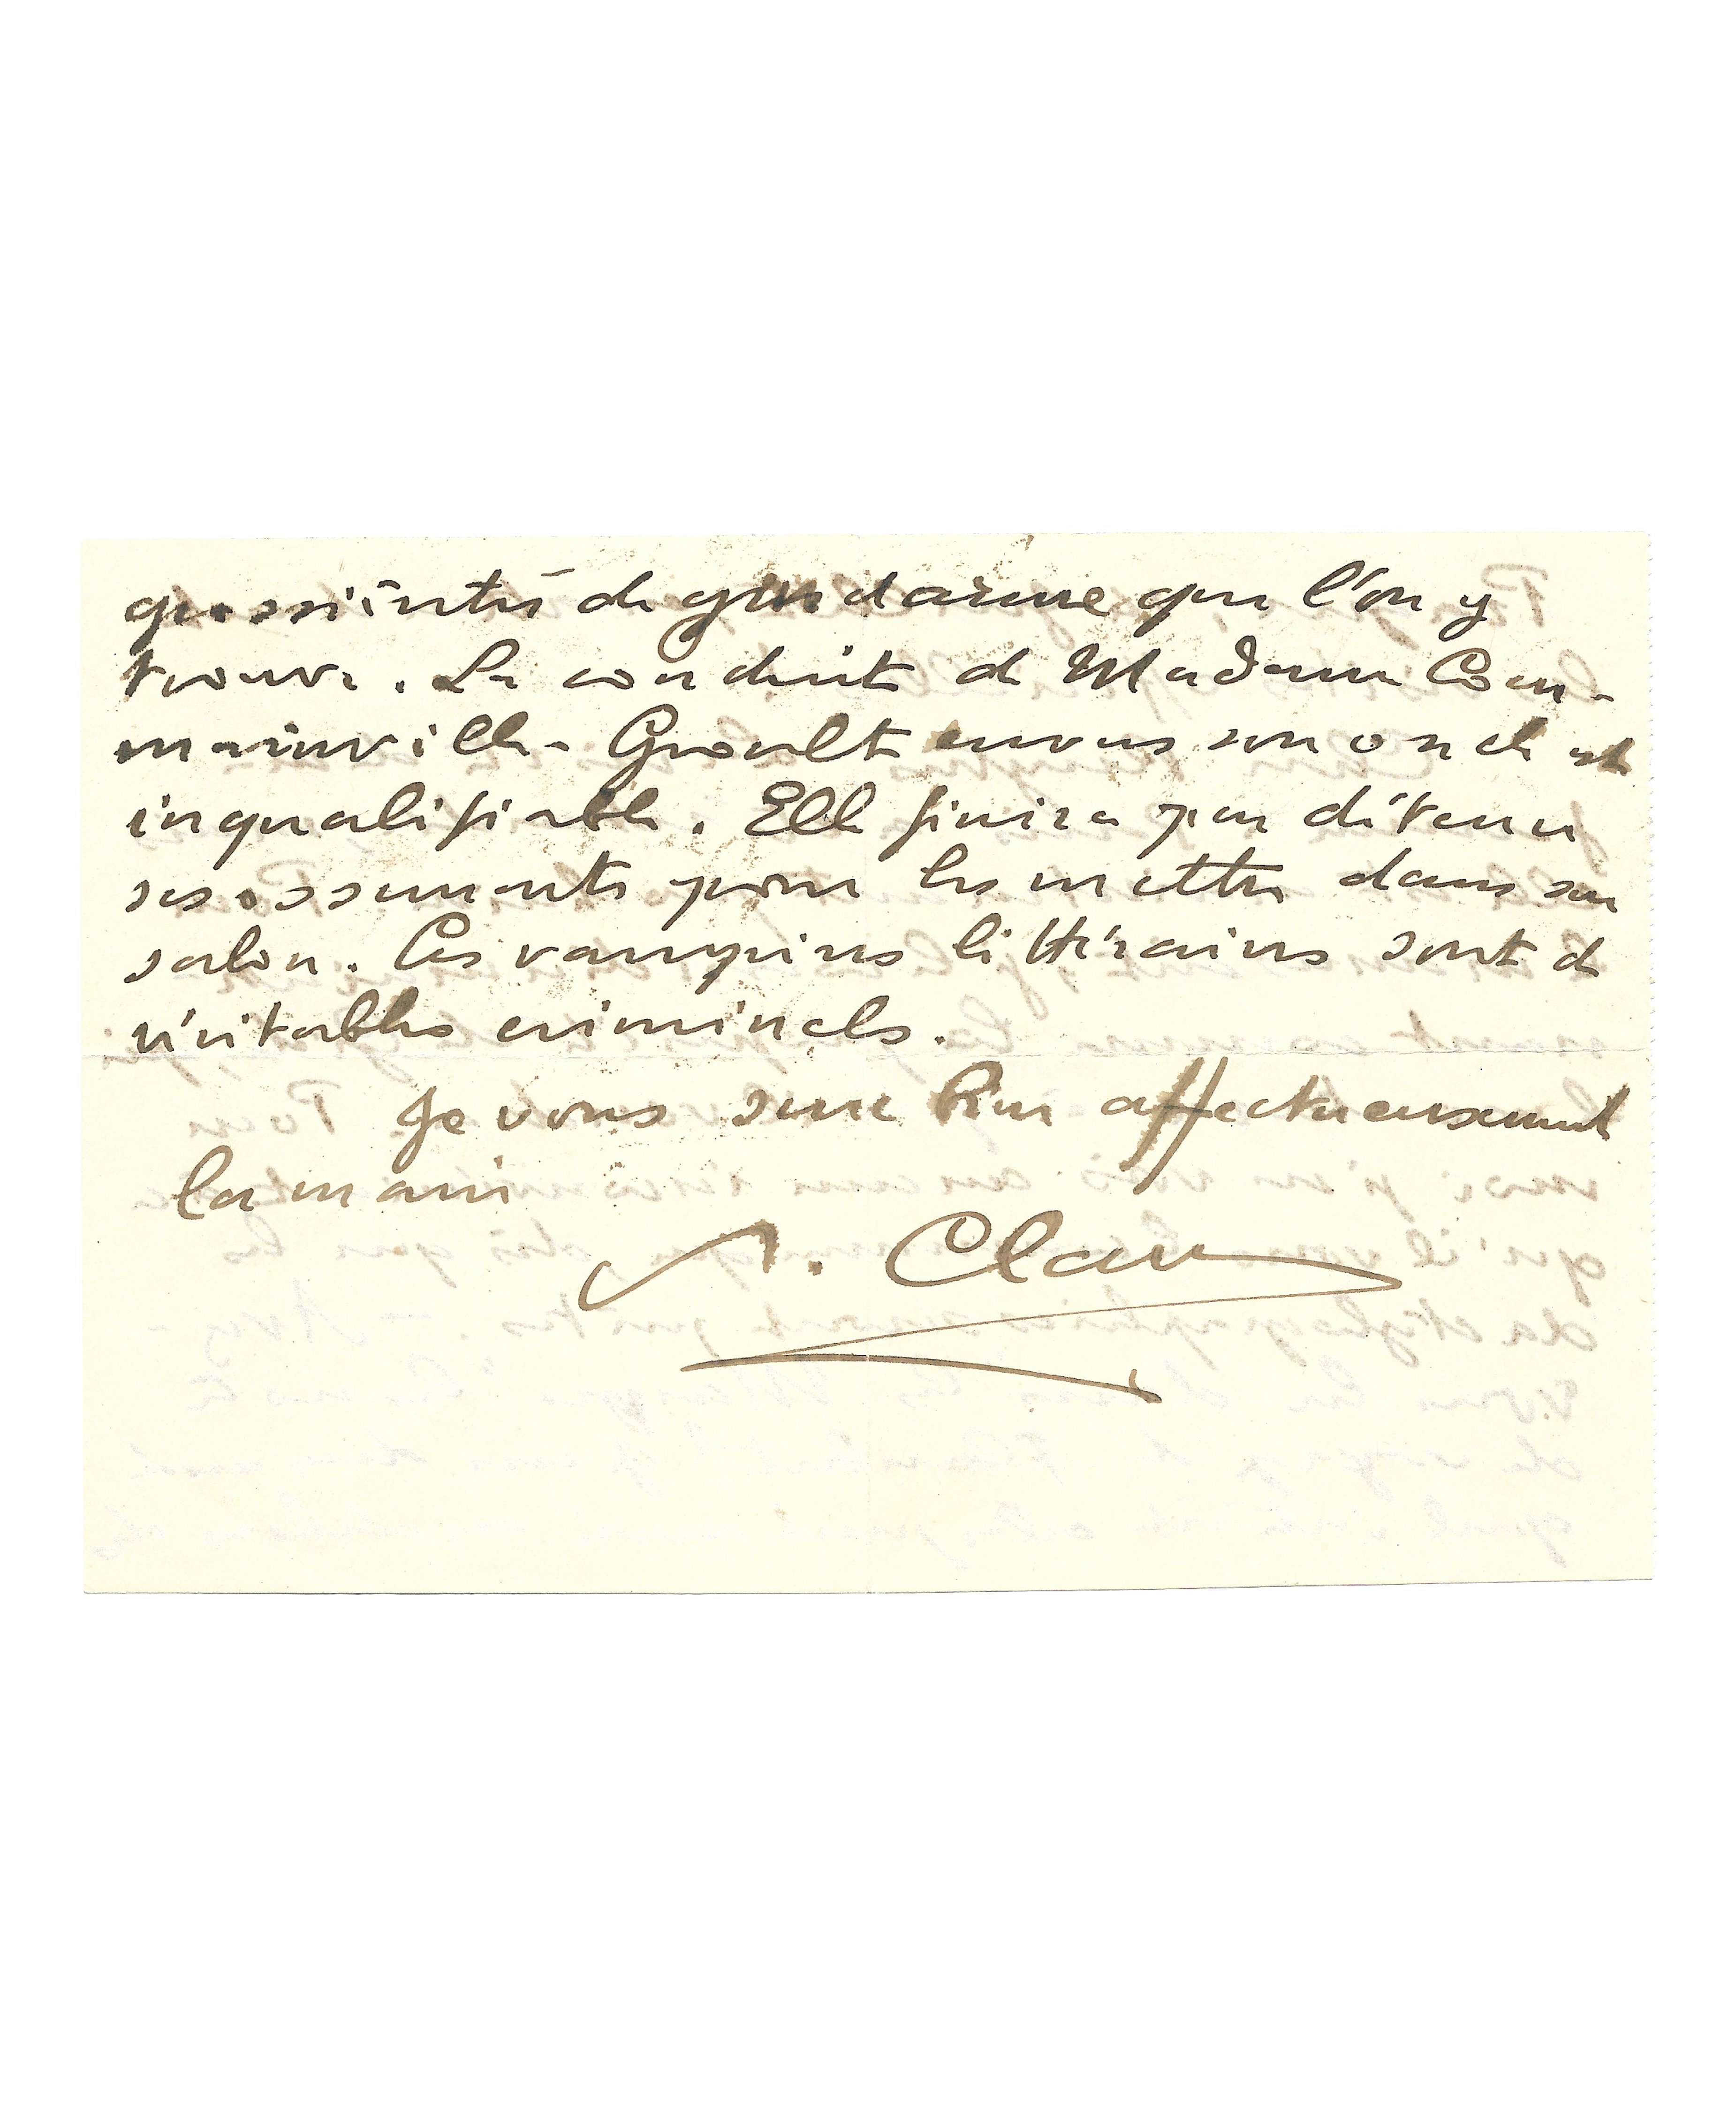 grossièretés de gendarme que l'on y
trouve. La conduite de Madame Com-
mainville-Groult envers son oncle est
inqualifiable. Elle finira par déterrer
ses ossements pour les mettre dans son
salon. Ces vampires littéraires sont de
véritables criminels.
Je vous serre bien affectueusement
la main